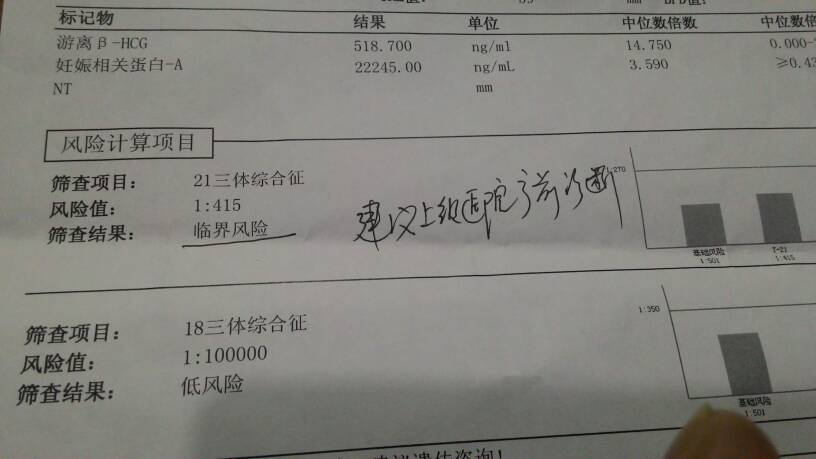 标记物 结果 单位 中位数倍数 中位数倍
游离β-HCG 518.700 ng/ml 14.750 0.000-
妊娠相关蛋白-A 22245.00 ng/mL 3.590 ≥0.43
NT mm
风险计算项目
筛查项目: 21三体综合征
风险值: 1:415
筛查结果: 临界风险
建议上级医院产前诊断
1:270
基础风险 T-21
1:501 1:415
筛查项目: 18三体综合征
风险值: 1:100000
筛查结果: 低风险
1:350
基础风险
1:501